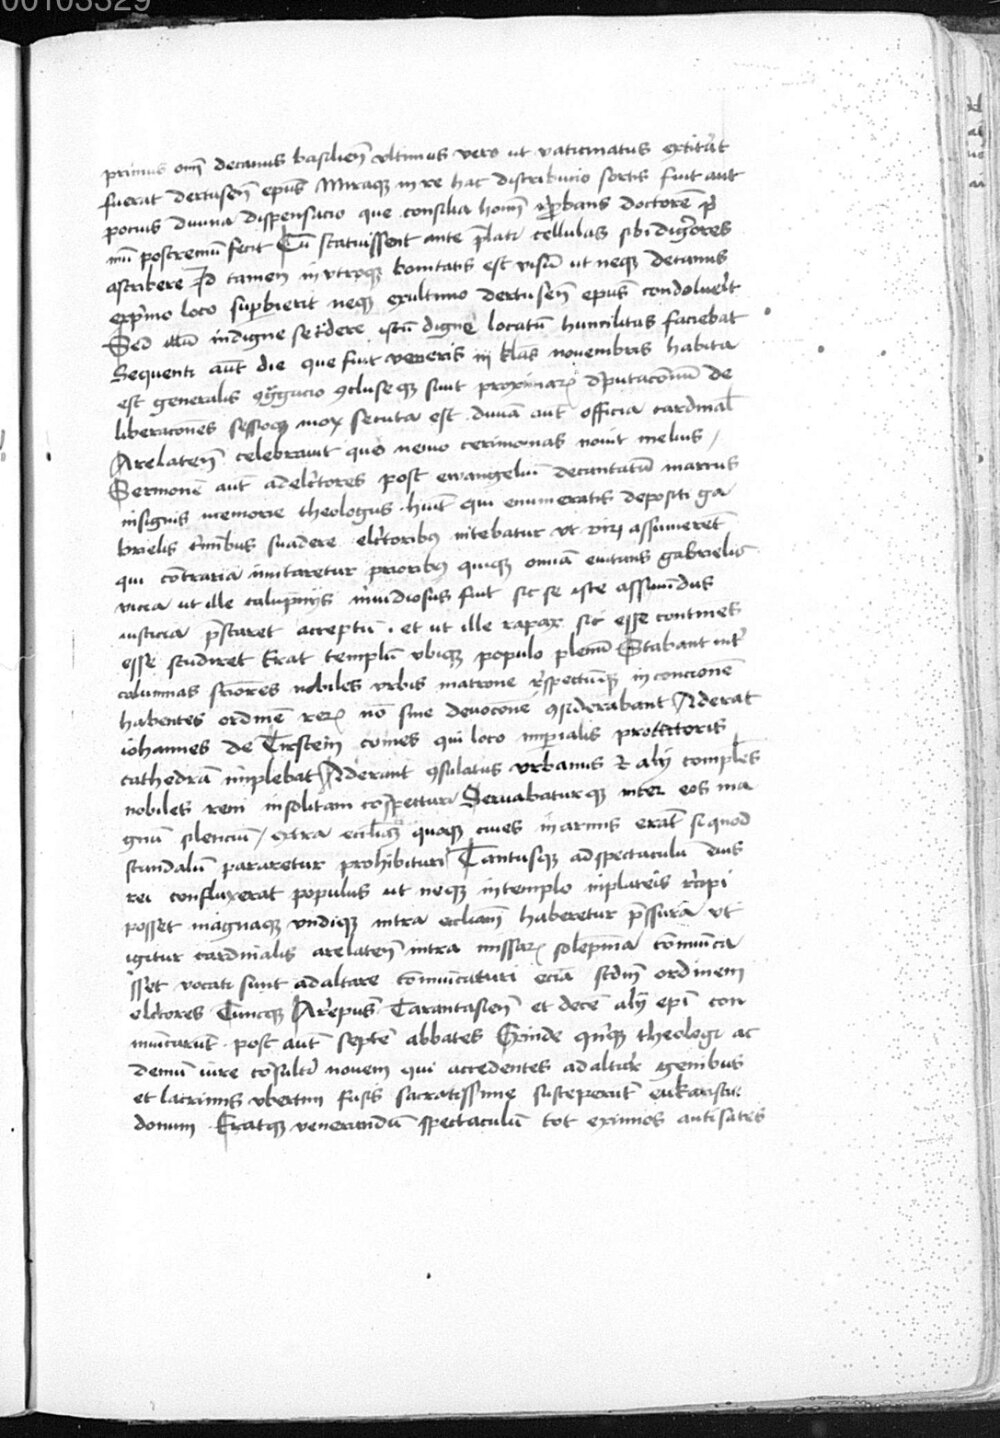 00103329
primus om̄ decanus basilien̄ vltimus vero ut vaticinatus extitat̄
fuerat dertusen̄ ep̄us Miraqꝫ in re hac distribucio sortis fuit aut
pocius diuina dispensacio que consilia homī ꝓbans doctorē p̄
mū postremū fecit Cū statuissent ante p̄lati cellulas sibi digōres
ascribere Id tamen in vtroqꝫ bonitatis est visū ut neqꝫ decanus
exp̄mo loco supbierit neqꝫ exultimo dertusen̄ ep̄us condoluer̄t
Sed illū indigne sedere istū digne locatū humilitas faciebat
Sequenti aut̄ die que fuit veneris iij kl̄as nouembris habita
est generalis ꝯg̃gacio ꝯcluseqꝫ sunt proximaꝝ dputaconū de
liberacones sessioqꝫ mox secuta est diuīa aut̄ officia cardinal̄
Arelaten̄ celebrauit quo nemo cerimonias nouit melius /
Sermonē aut̄ adel̄ctores post ewangeliū decantatū marcus
insignis memorie theologus hūit qui enumeratis depositi ga
brielis c̄minibus suadere el̄ctoribꝫ nitebatur vt virū assumerēt
qui contraria imitaretur prioribꝫ quiqꝫ omīa euitans gabrielis
vicia ut ille calūpnijs inuidiosus fuit sic se iste assumēdus
iusticia p̄staret acceptū . et ut ille rapax sic esse continēs
esse studēret Erat templū vbiqꝫ populo plenū Stabant int̄
columnas seniores nobiles vrbis matrone r̄spectumqꝫ in concionē
habentes ordinē reꝝ nō sine deuocone ꝯsiderabant Aderat
iohannes de Tirstein comes qui loco imperialis protectoris
cathedrā implebat Aderant ꝯsulatus vrbanus & alij compl̄es
nobiles rem insolitam conspecturi Seruabaturqꝫ inter eos ma
gnū silenciū / extra eccl̄iāqꝫ quoqꝫ ciues in armis erant siquod
scandalū pararetur prohibituri Tantusqꝫ adspectaculū eius
rei confluxerat populus ut neqꝫ intemplo inplateis r̄cipi
posset magnaqꝫ vndiqꝫ intra eccliam haberetur p̄ssura vt
igitur cardinalis arelaten̄ intra missaꝝ solēpnia cōmunica
sset vocati sunt adaltare cōmunicaturi eciā scdm̄ ordinem
el̄ctores Tuncqꝫ Ar̄epus Tarantasien̄ et decē alij ep̄i com
municarūt post aut̄ septē abbates Exinde qn̄qꝫ theologi ac
demū iure consulti nouem qui accedentes adaltar̄ genibus
et lacrimis vbertim fusis sacratissime susceperūt eukaristie
donum Eratqꝫ venerandū spectaculū tot eximios antistites